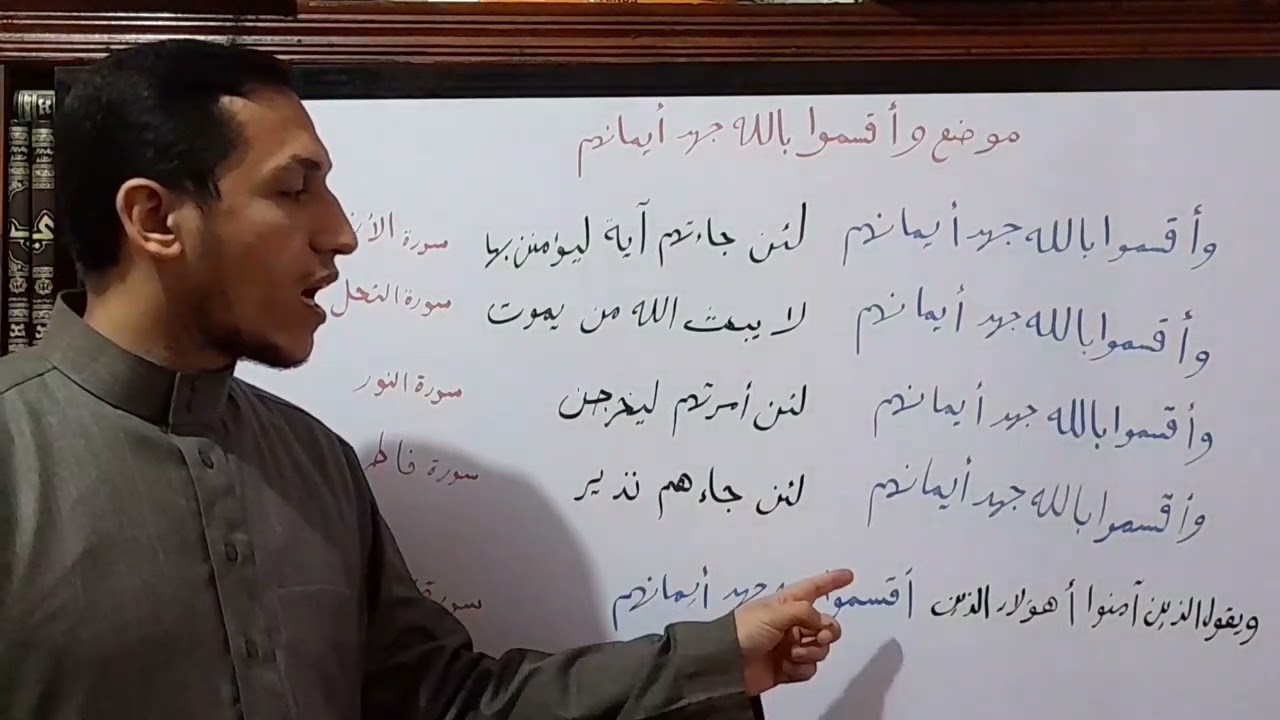 موضع وأقسموا بالله جهد أيمانهم
وأقسموا بالله جهد أيمانهم لئن جاءتهم آية ليؤمنن بها سورة
وأقسموا بالله جهد أيمانهم لا يبعث الله من يموت سورة النحل
وأقسموا بالله جهد أيمانهم لئن أمرتهم ليخرجن سورة النور
وأقسموا بالله جهد أيمانهم لئن جاءهم نذير سورة فاطر
ويقول الذين آمنوا أهؤلاء الذين أقسموا جهد أيمانهم سورة